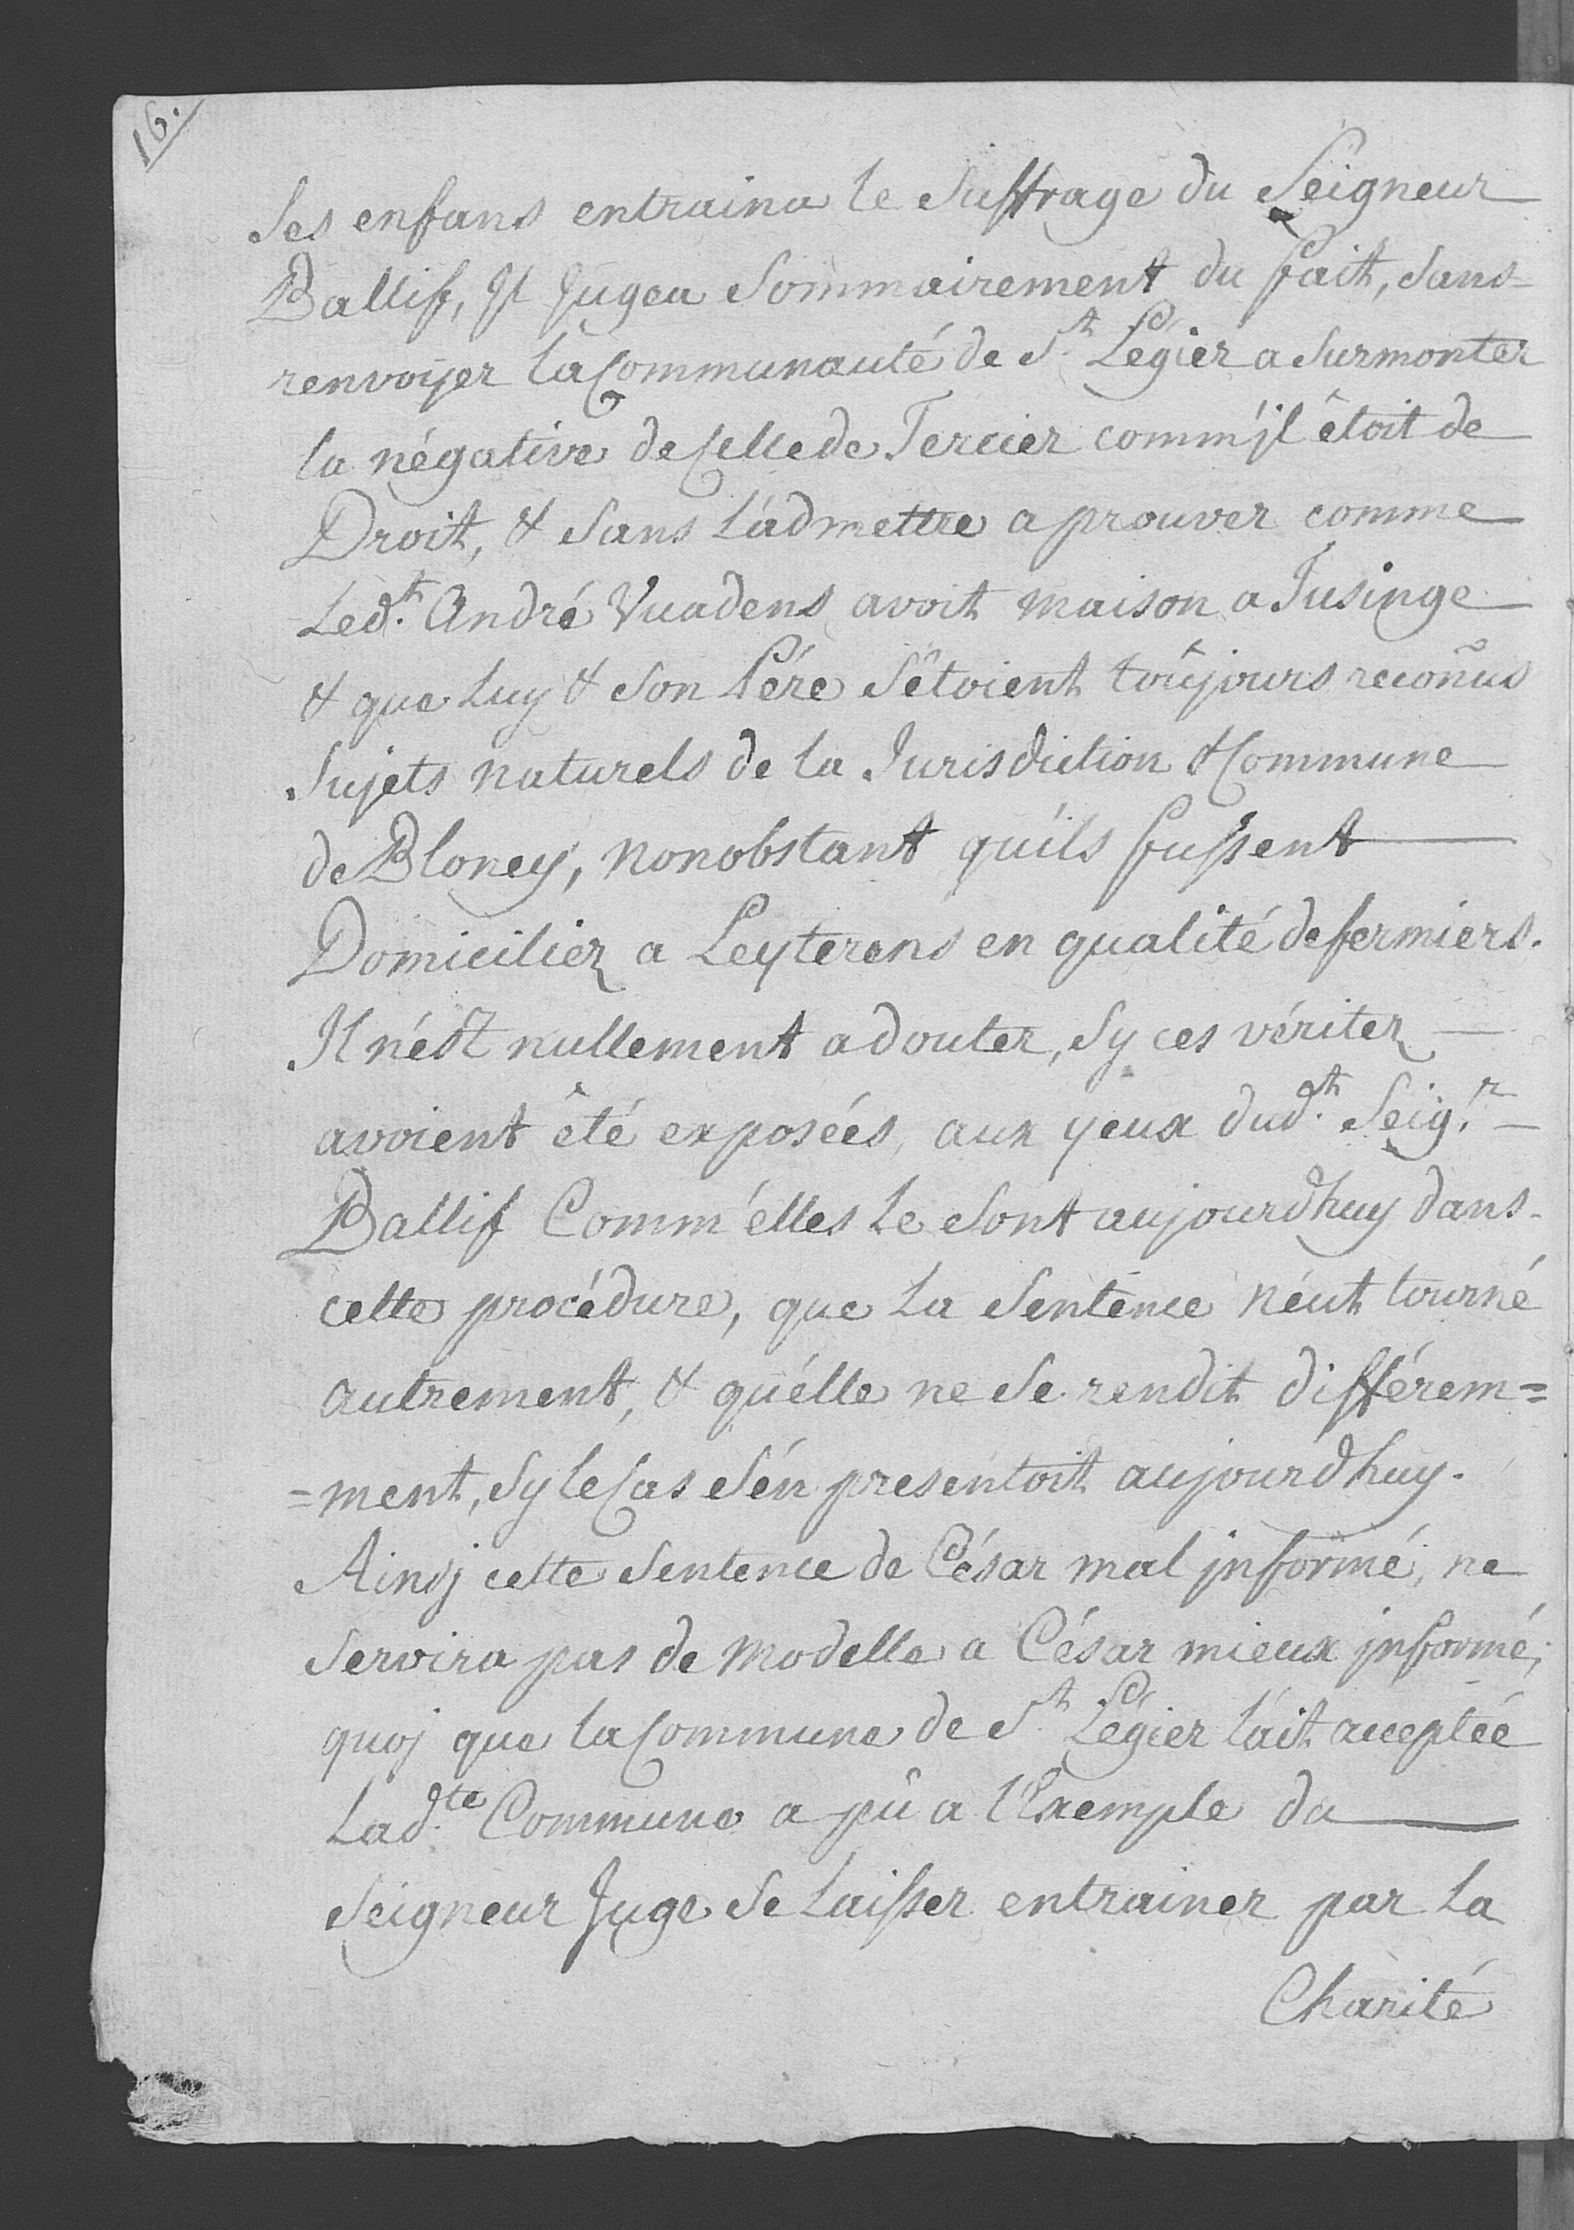 16.
Ses enfans entraina le Suffrage du Seigneur
Ballif, Il Jugea Sommairement du fait, Sans
renvoyer la Communauté de S.t Légier a Surmonter
la négative de Celle de Tercier comm'jl étoit de
Droit, & Sans l'admettre a prouver comme
Led.t André Vuadens avoit maison a Jusinge
& que Luy & Son Pére S'étoient toûjours reconñus
Sujets naturels de la Jurisdiction & Commune
de Bloney, nonobstant qu'ils fussent
Domiciliez a Leyterens en qualité de fermiers.
Il n'est nullement a douter, Sy ces véritez
avoient êté exposées, aux yeux dud.t Seig.r
Ballif Comm'elles Le Sont aujourdhuy dans
cette procédure, que La Sentence n'eut tourné
autrement, & qu'elle ne Se rendit différem=
=ment, Sy le Cas S'en presentoit aujourdhuy.
Ainsj cette Sentence de César mal jnformé, ne
Servira pas de modelle a César mieux jnformé;
quoj que la Commune de S.t Légier l'ait acceptée
Lad.te Commune a pû a l'Exemple du
Seigneur Juge Se Laisser entrainer par La
Charité